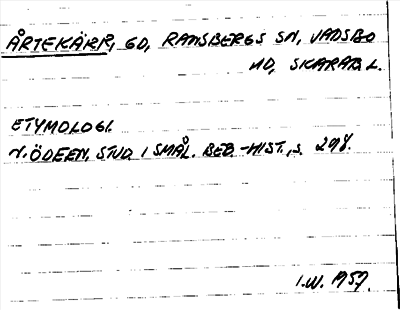 ÅRTEKÄRR, GD, RANSBERGS SN, VADSBO
HD, SKARAB. L.
ETYMOLOGI.
N. ÖDEEN, STUD. I SMÅL. BEB.-HIST., S. 298.
I.W. 1957.